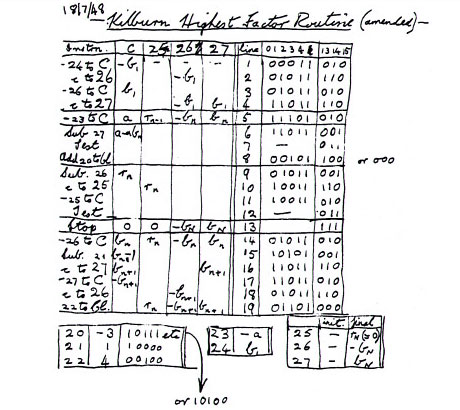 18/7/48 Kilburn Highest Factor Routine (amended)—
Instrn. C 25 26 27 line 0 1 2 3 4 13 14 15
-24 to C -b₁ - - - 1 00011 010
c to 26 -b₁ 2 01011 110
-26 to C b₁ 3 01011 010
c to 27 -b₁ b₁ 4 11011 110
-23 to C a rₙ₋₁ -bₙ bₙ 5 11101 010
Sub. 27 a-bₙ 6 11011 001
Test 7 — 011
Add 20 to bl. 8 00101 100 or 000
Sub. 26 rₙ 9 01011 001
c to 25 rₙ 10 10011 110
-25 to C 11 10011 010
Test 12 — 011
Stop 0 0 -bN bN 13 111
-26 to C bₙ rₙ -bₙ bₙ 14 01011 010
Sub. 21 bₙ₊₁ 15 10101 001
c to 27 bₙ₊₁ bₙ₊₁ 16 11011 110
-27 to C -bₙ₊₁ 17 11011 010
c to 26 -bₙ₊₁ 18 01011 110
22 to bl. rₙ -bₙ₊₁ bₙ₊₁ 19 01101 000
init. final
20 -3 10111 etc 23 -a 25 - rN (=0)
21 1 10000 24 b₁ 26 - -bN
22 4 00100 27 - bN
or 10100